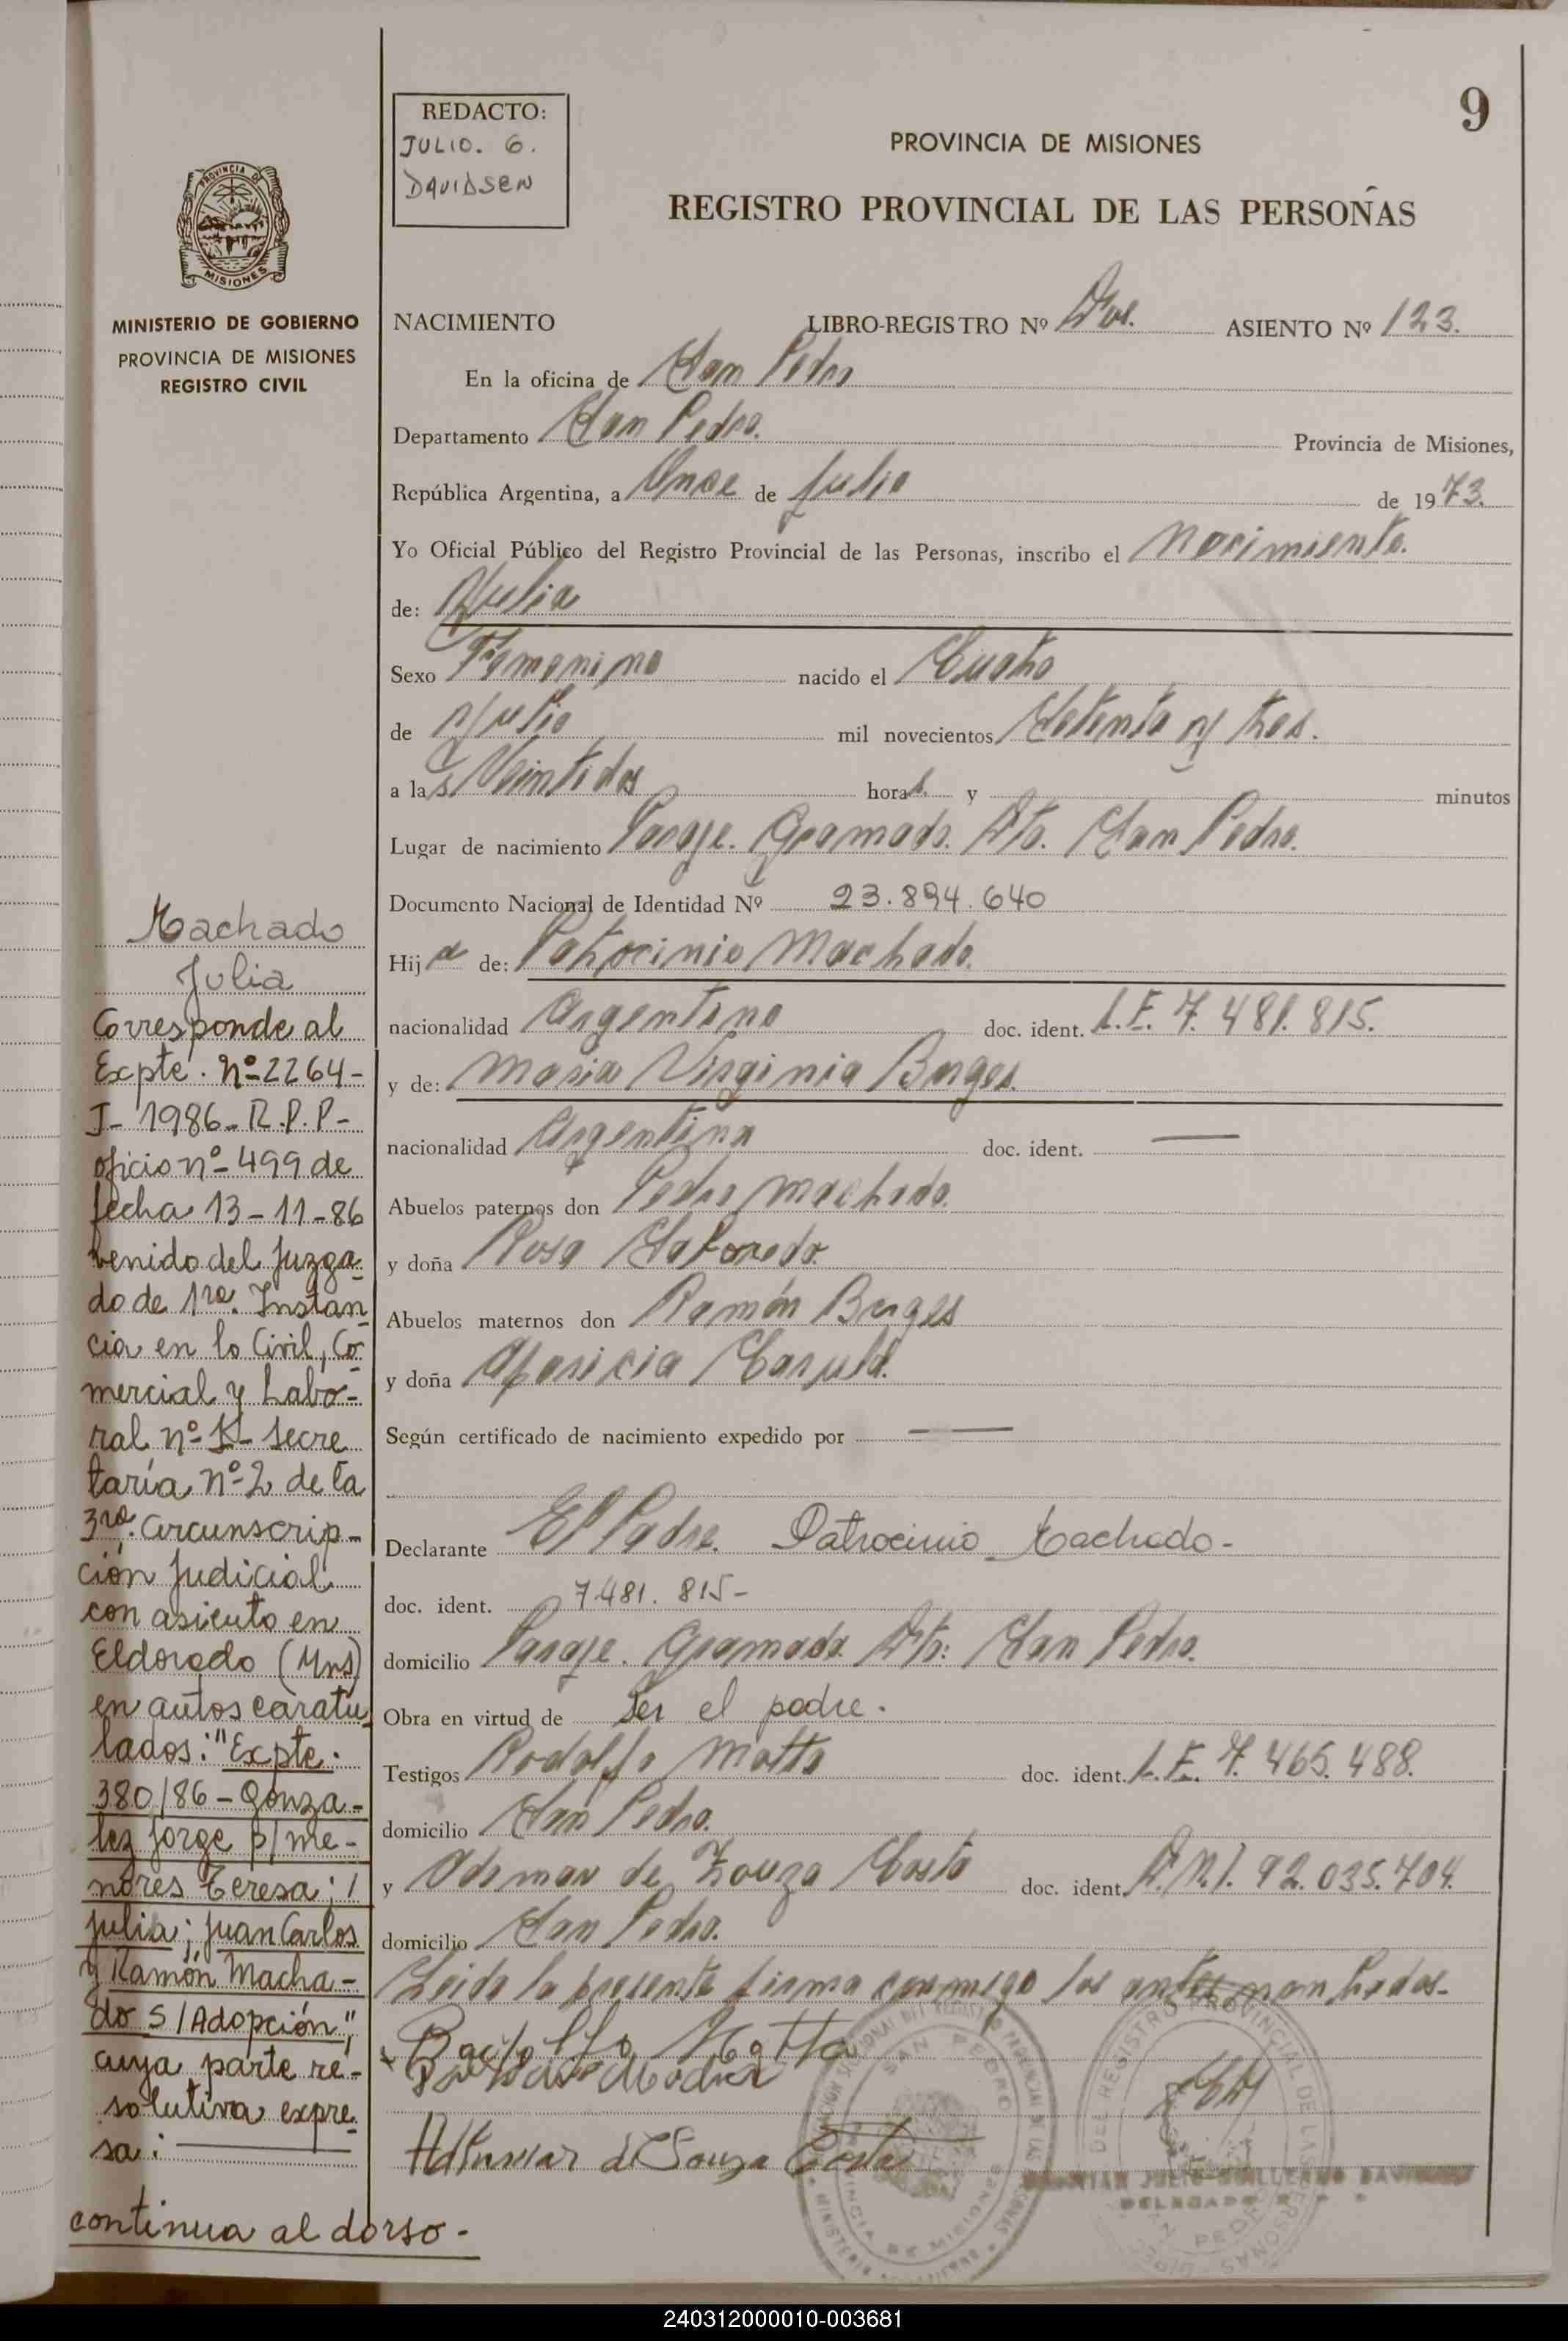 9
REDACTO:
JULIO. G.
DAVIDSEN
PROVINCIA DE MISIONES
REGISTRO PROVINCIAL DE LAS PERSONAS
PROVINCIA DE
MISIONES
MINISTERIO DE GOBIERNO
PROVINCIA DE MISIONES
REGISTRO CIVIL
NACIMIENTO LIBRO-REGISTRO Nº Dos. ASIENTO Nº 123.
En la oficina de San Pedro
Departamento San Pedro. Provincia de Misiones,
República Argentina, a Once de Julio de 1973.
Yo Oficial Público del Registro Provincial de las Personas, inscribo el Nacimiento.
de: Julia
Sexo Femenino nacido el Cuatro
de Julio mil novecientos Setenta y tres.
a las Veintidos horas. y minutos
Lugar de nacimiento Paraje. Gramado. Dto. San Pedro.
Documento Nacional de Identidad Nº 23.894.640
Hija de: Patrocinio Machado.
nacionalidad Argentino doc. ident. L.E. 7.481.815.
y de: Maria Virginia Borges.
nacionalidad Argentina doc. ident. —
Abuelos paternos don Pedro Machado.
y doña Rosa
Abuelos maternos don Ramón Borges
y doña Aparicia
Según certificado de nacimiento expedido por —
Declarante El Padre. Patrocinio Machado-
doc. ident. 7.481.815-
domicilio Paraje. Gramado. Dto: San Pedro.
Obra en virtud de Ser el padre.
Testigos Rodolfo Motta doc. ident. L.E. 7.465.488.
domicilio San Pedro.
y Ademar de Zouza Costa doc. ident. D.N.I. 92.035.704.
domicilio San Pedro.
Leida la presente firma conmigo los antes nombrados-
Motta
de Souza Costa
DELEGADO
Machado
Julia
Corresponde al
Expte. Nº 2264-
J- 1986- R.P.P-
oficio nº- 499 de
fecha 13-11-86
venido del Juzga-
do de 1ra. Instan-
cia en lo Civil, Co-
mercial y Labo-
ral nº- 1- Secre
taría nº-2 de la
3ra. Circunscrip-
ción Judicial
con asiento en
Eldorado (Mns)
en autos caratu-
lados: "Expte.
380/86 - Gonza-
lez Jorge p/me-
nores Teresa; /
Julia; Juan Carlos
y Ramón Macha-
do S/Adopción",
cuya parte re-
solutiva expre-
sa: —
continua al dorso-
240312000010-003681